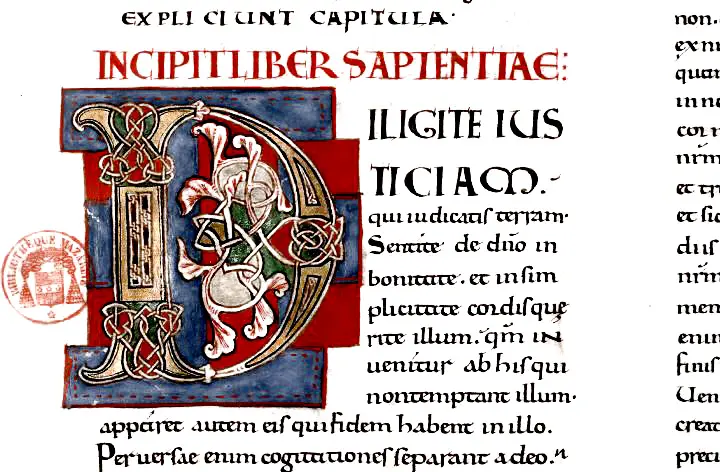 EXPLICIUNT CAPITULA·
INCIPIT LIBER SAPIENTIAE:
DILIGITE IUS
TICIAM.
qui iudicatis terram·
Sentite de dño in
bonitate· et in sim
plicitate cordis quę
rite illum. qm̄ in
uenitur ab his qui
non temptant illum·
apparet autem eis qui fidem habent in illo.
Peruersae enim cogitationes separant a deo.
non.
ex ni
quan
in ne
nr̄m
et si
diis
nr̄m
mem
enim
finis
Uen
creat
preci
BIBLIOTHEQUE MAZARINE